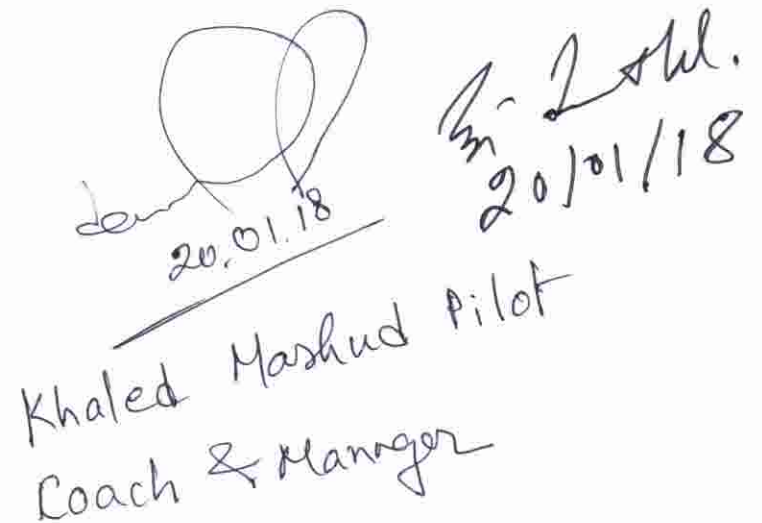 20.01.18
20/01/18
Khaled Mashud Pilot
Coach & Manager